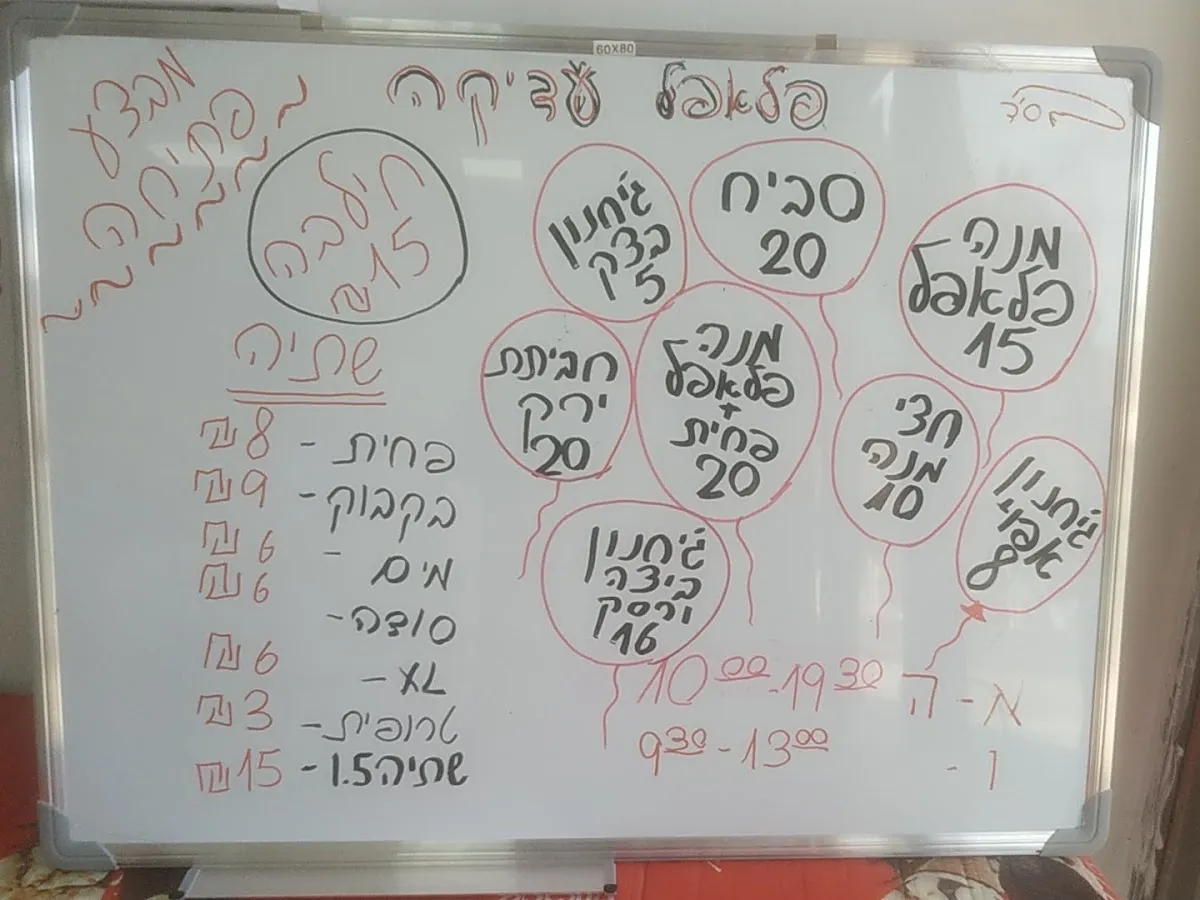 60X80
בס״ד
פלאפל עדיקה
מבצע
פתיחה
חילבה
15 ₪
ג'חנון
בצק
5
סביח
20
מנה
פלאפל
15
חביתת
ירק
20
מנה
פלאפל
+
פחית
20
חצי
מנה
10
ג'חנון
אפוי
8
ג'חנון
ביצה
ורסק
16
שתיה
פחית - 8 ₪
בקבוק - 9 ₪
מים - 6 ₪
סודה - 6 ₪
XL - 6 ₪
טרופית - 3 ₪
שתיה 1.5 - 15 ₪
א - ה 10:00-19:30
ו - 9:30-13:00